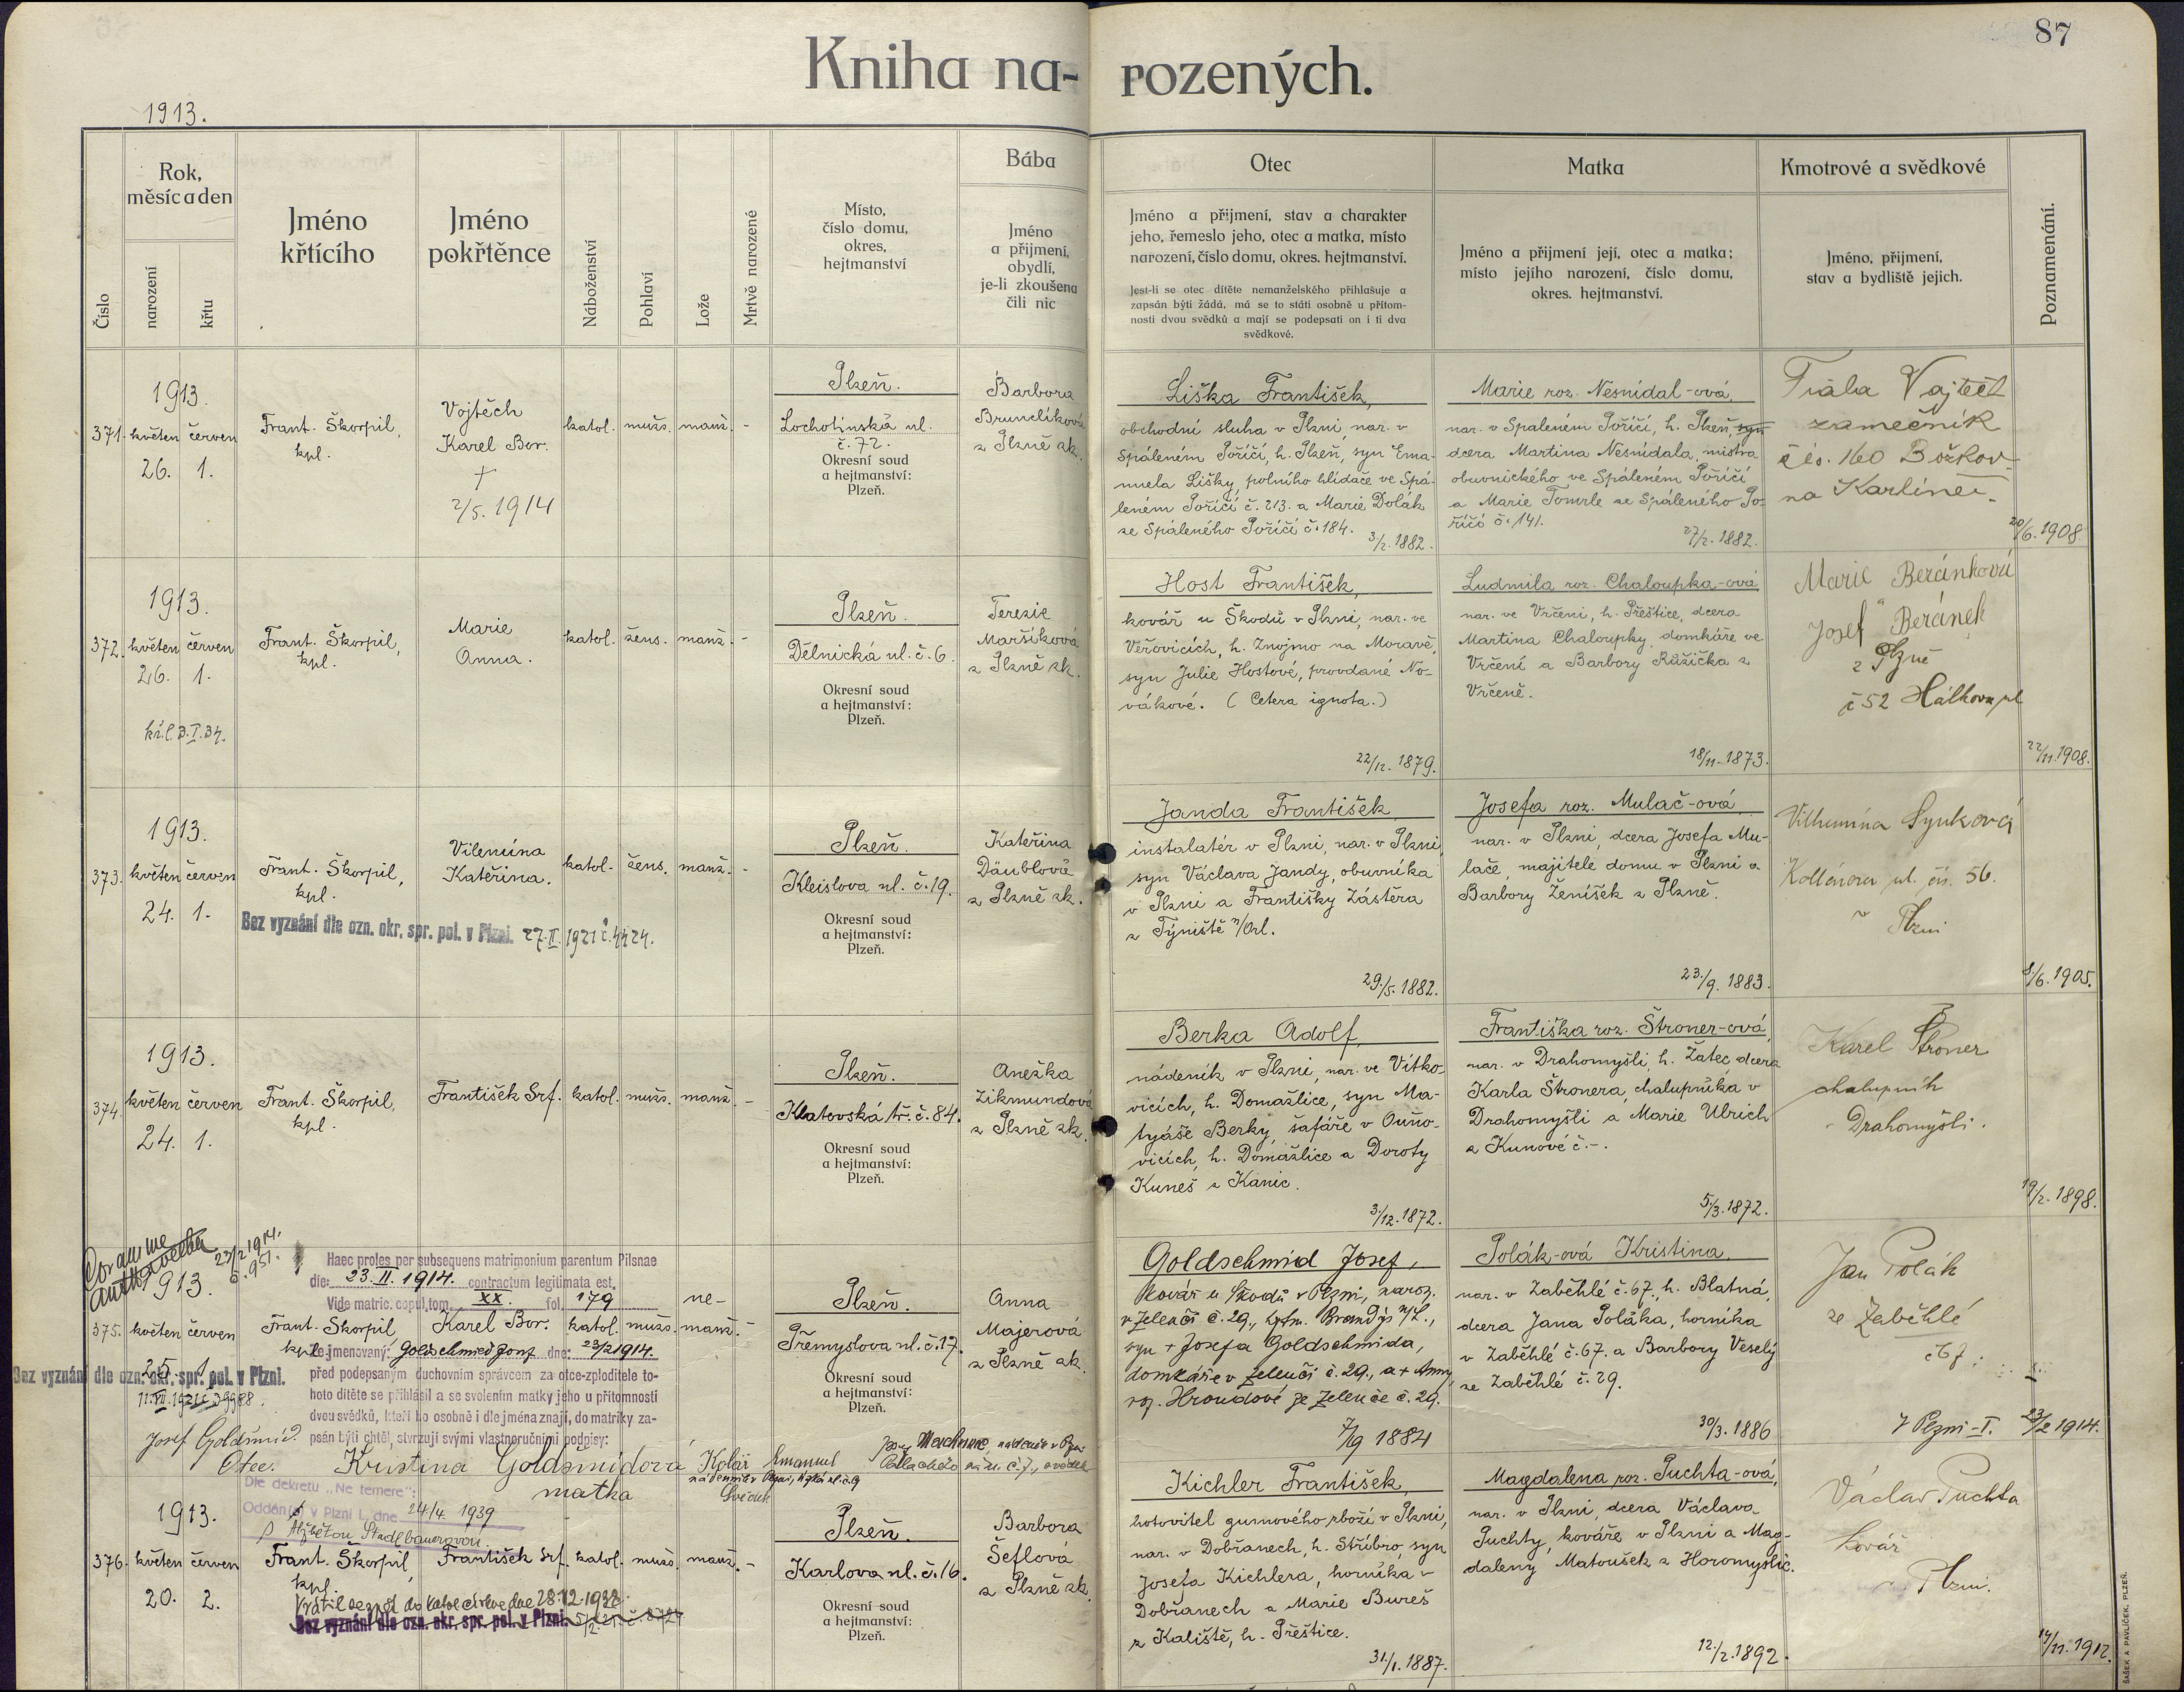 87
Kniha na-rozených.
1913.
Číslo
Rok,
měsíc a den
narození
křtu
Jméno
křtícího
Jméno
pokřtěnce
Náboženství
Pohlaví
Lože
Mrtvě narozené
Místo,
číslo domu,
okres,
hejtmanství
Bába
Jméno
a přijmení,
obydlí,
je-li zkoušena
čili nic
Otec
Jméno a přijmení, stav a charakter
jeho, řemeslo jeho, otec a matka, místo
narození, číslo domu, okres. hejtmanství.
Jest-li se otec dítěte nemanželského přihlašuje a
zapsán býti žádá, má se to státi osobně u přítom-
nosti dvou svědků a mají se podepsati on i ti dva
svědkové.
Matka
Jméno a přijmení její, otec a matka;
místo jejího narození, číslo domu,
okres. hejtmanství.
Kmotrové a svědkové
Jméno, přijmení,
stav a bydliště jejich.
Poznamenání.
1913.
371. květen červen
26. 1.
Frant. Škorpil,
kpl.
Vojtěch
Karel Bor.
†
2/5. 1914
katol. mužs. manž. -
Plzeň.
Lochotínská ul.
č. 72.
Okresní soud
a hejtmanství:
Plzeň.
Barbora
Brunclíková
z Plzně zk.
Liška František,
obchodní sluha v Plzni, nar. v
Spáleném Poříčí, h. Plzeň, syn Ema-
nuela Lišky, polního hlídače ve Spá-
leném Poříčí č. 213. a Marie Dolák
ze Spáleného Poříčí č. 184.
3/2. 1882.
Marie roz. Nesnídal-ová,
nar. v Spáleném Poříčí, h. Plzeň, syn
dcera Martina Nesnídala, mistra
obuvnického ve Spáleném Poříčí
a Marie Tomrle ze Spáleného Po-
říčí č. 141.
27/2. 1882.
Fiala Vojtěch
zámečník
čís. 160 Božkov
na Karlíně.
20/6. 1908.
1913.
372. květen červen
26. 1.
kř. l. 3. I. 34.
Frant. Škorpil,
kpl.
Marie
Anna.
katol. žens. manž. -
Plzeň.
Dělnická ul. č. 6.
Okresní soud
a hejtmanství:
Plzeň.
Terezie
Maršíková
z Plzně zk.
Host František,
kovář u Škodů v Plzni, nar. ve
Veřovicích, h. Znojmo na Moravě,
syn Julie Hostové, provdané No-
vákové. (Cetera ignota.)
22/12. 1879.
Ludmila roz. Chaloupka-ová
nar. ve Vrčeni, h. Přeštice, dcera
Martina Chaloupky, domkáře ve
Vrčení a Barbory Růžička z
Vrčeně.
18/11. 1873.
Marie Beránková
Josef Beránek
z Plzně
č 52 Hálkova ul
22/11. 1908.
1913.
373. květen červen
24. 1.
Frant. Škorpil,
kpl.
Vilemína
Kateřina.
katol. žens. manž. -
Bez vyznání dle ozn. okr. spr. pol. v Plzni. 27. II. 1921 č. 4424.
Plzeň.
Kleislova ul. č. 19.
Okresní soud
a hejtmanství:
Plzeň.
Kateřina
Däublová
z Plzně zk.
Janda František,
instalatér v Plzni, nar. v Plzni,
syn Václava Jandy, obuvníka
v Plzni a Františky Zástěra
z Týniště n/Orl.
29./5. 1882.
Josefa roz. Mulač-ová
nar. v Plzni, dcera Josefa Mu-
lače, majitele domu v Plzni a
Barbory Ženíšek z Plzně.
23./9. 1883.
Vilhemína Synková
Kollárova ul. čís. 56.
v Plzni
8/6. 1905.
1913.
374. květen červen
24. 1.
Frant. Škorpil,
kpl.
František Srf.
katol. mužs. manž. -
Plzeň.
Klatovská tř. č. 84.
Okresní soud
a hejtmanství:
Plzeň.
Anežka
Zikmundová
z Plzně zk.
Berka Adolf,
nádeník v Plzni, nar. ve Vítko-
vicích, h. Domažlice, syn Ma-
tyáše Berky, šafáře v Ouňo-
vicích, h. Domažlice a Doroty
Kuneš z Kanic.
3/12. 1872.
Františka roz. Štroner-ová,
nar. v Drahomyšli, h. Žatec, dcera
Karla Štronera, chalupníka v
Drahomyšli a Marie Ulrich
z Kunové č. -.
5./3. 1872.
Karel Štroner
chalupník
v Drahomyšli.
19/2. 1898.
Coram me
23/2 1914.
č. 951.
Haec proles per subsequens matrimonium parentum Pilsnae
die: 23. II. 1914. contractum legitimata est.
Vide matric. copul. tom. XX. fol. 179
1913.
375. květen červen
25. 1.
Frant. Škorpil
kpl.
Karel Bor.
katol. mužs. ne-
manž. -
Že jmenovaný: Goldschmied Josef dne: 23/2 1914.
před podepsaným duchovním správcem za otce-zploditele to-
hoto dítěte se přihlásil a se svolením matky jeho u přítomnosti
dvou svědků, kteří ho osobně i dle jména znají, do matriky za-
psán býti chtěl, stvrzují svými vlastnoručními podpisy:
Bez vyznání dle ozn. okr. spr. pol. v Plzni.
11. VII. 1921 č. 39988.
Josef Goldšmíd.
Otec.
Kristina Goldsmidová
matka
Kolář Emanuel
nádenník v Plzni,
Svědek
Plzeň.
Přemyslova ul. č. 17.
Okresní soud
a hejtmanství:
Plzeň.
Anna
Majerová
z Plzně zk.
Goldschmid Josef,
kovář u Škodů v Plzni, naroz.
v Zelenči č. 29., hejtm. Brandýs n/L.,
syn † Josefa Goldschmida,
domkáře v Zelenči č. 29., a † Anny
roz. Hroudové ze Zelenče č. 29.
7/9 1884
Polák-ová Kristina,
nar. v Zaběhlé č. 67., h. Blatná,
dcera Jana Poláka, horníka
v Zaběhlé č. 67. a Barbory Veselý
ze Zaběhlé č. 29.
30/3. 1886
Jan Polák
ze Zaběhlé
č 67.
v Plzni-I. 23/2 1914.
Dle dekretu „Ne temere“:
Oddán(a) v Plzni I., dne 24/4. 1939
s Alžbětou Stadlbauerovou.
1913.
376. květen červen
20. 2.
Frant. Škorpil,
kpl.
František Srf.
katol. mužs. manž. -
Vrátil se zpět do katol. církve dne 28. 12. 1938.
Bez vyznání dle ozn. okr. spr. pol. v Plzni.
Plzeň.
Karlova ul. č. 16.
Okresní soud
a hejtmanství:
Plzeň.
Barbora
Šeflová
z Plzně zk.
Kichler František,
hotovitel gumového zboží v Plzni,
nar. v Dobřanech, h. Stříbro, syn
Josefa Kichlera, horníka v
Dobřanech a Marie Bureš
z Kaliště, h. Přeštice.
31/1. 1887.
Magdalena roz. Puchta-ová,
nar. v Plzni, dcera Václava
Puchty, kováře v Plzni a Mag-
daleny Matoušek z Horomyslic.
12./2. 1892.
Václav Puchta
kovář
v Plzni.
17/11. 1912.
ŠAŠEK A PAVLÍČEK, PLZEŇ.